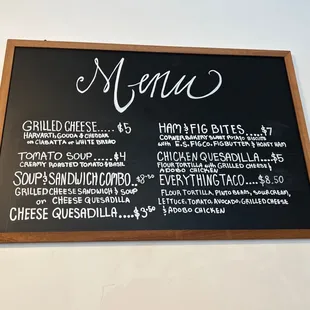 Menu
GRILLED CHEESE..... $5
HARVARTI, GOUDA & CHEDDAR
ON CIABATTA OF WHITE BREAD
TOMATO SOUP ...... $4
CREAMY ROASTED TOMATO & BASIL
SOUP & SANDWICH COMBO.. $8.50
GRILLED CHEESE SANDWICH & SOUP
OR CHEESE QUESADILLA
CHEESE QUESADILLA.... $3.50
HAM & FIG BITES.... $7
CORNER BAKERY SWEET POTATO BISCUITS
WITH E.S. FIG CO. FIG BUTTER & HONEY HAM
CHICKEN QUESADILLA....$5
FLOUR TORTILLA WITH GRILLED CHEESE &
ADOBO CHICKEN
EVERYTHING TACO.... $8.50
FLOUR TORTILLA, PINTO BEANS, SOUR CREAM,
LETTUCE, TOMATO, AVOCADO, GRILLED CHEESE
& ADOBO CHICKEN